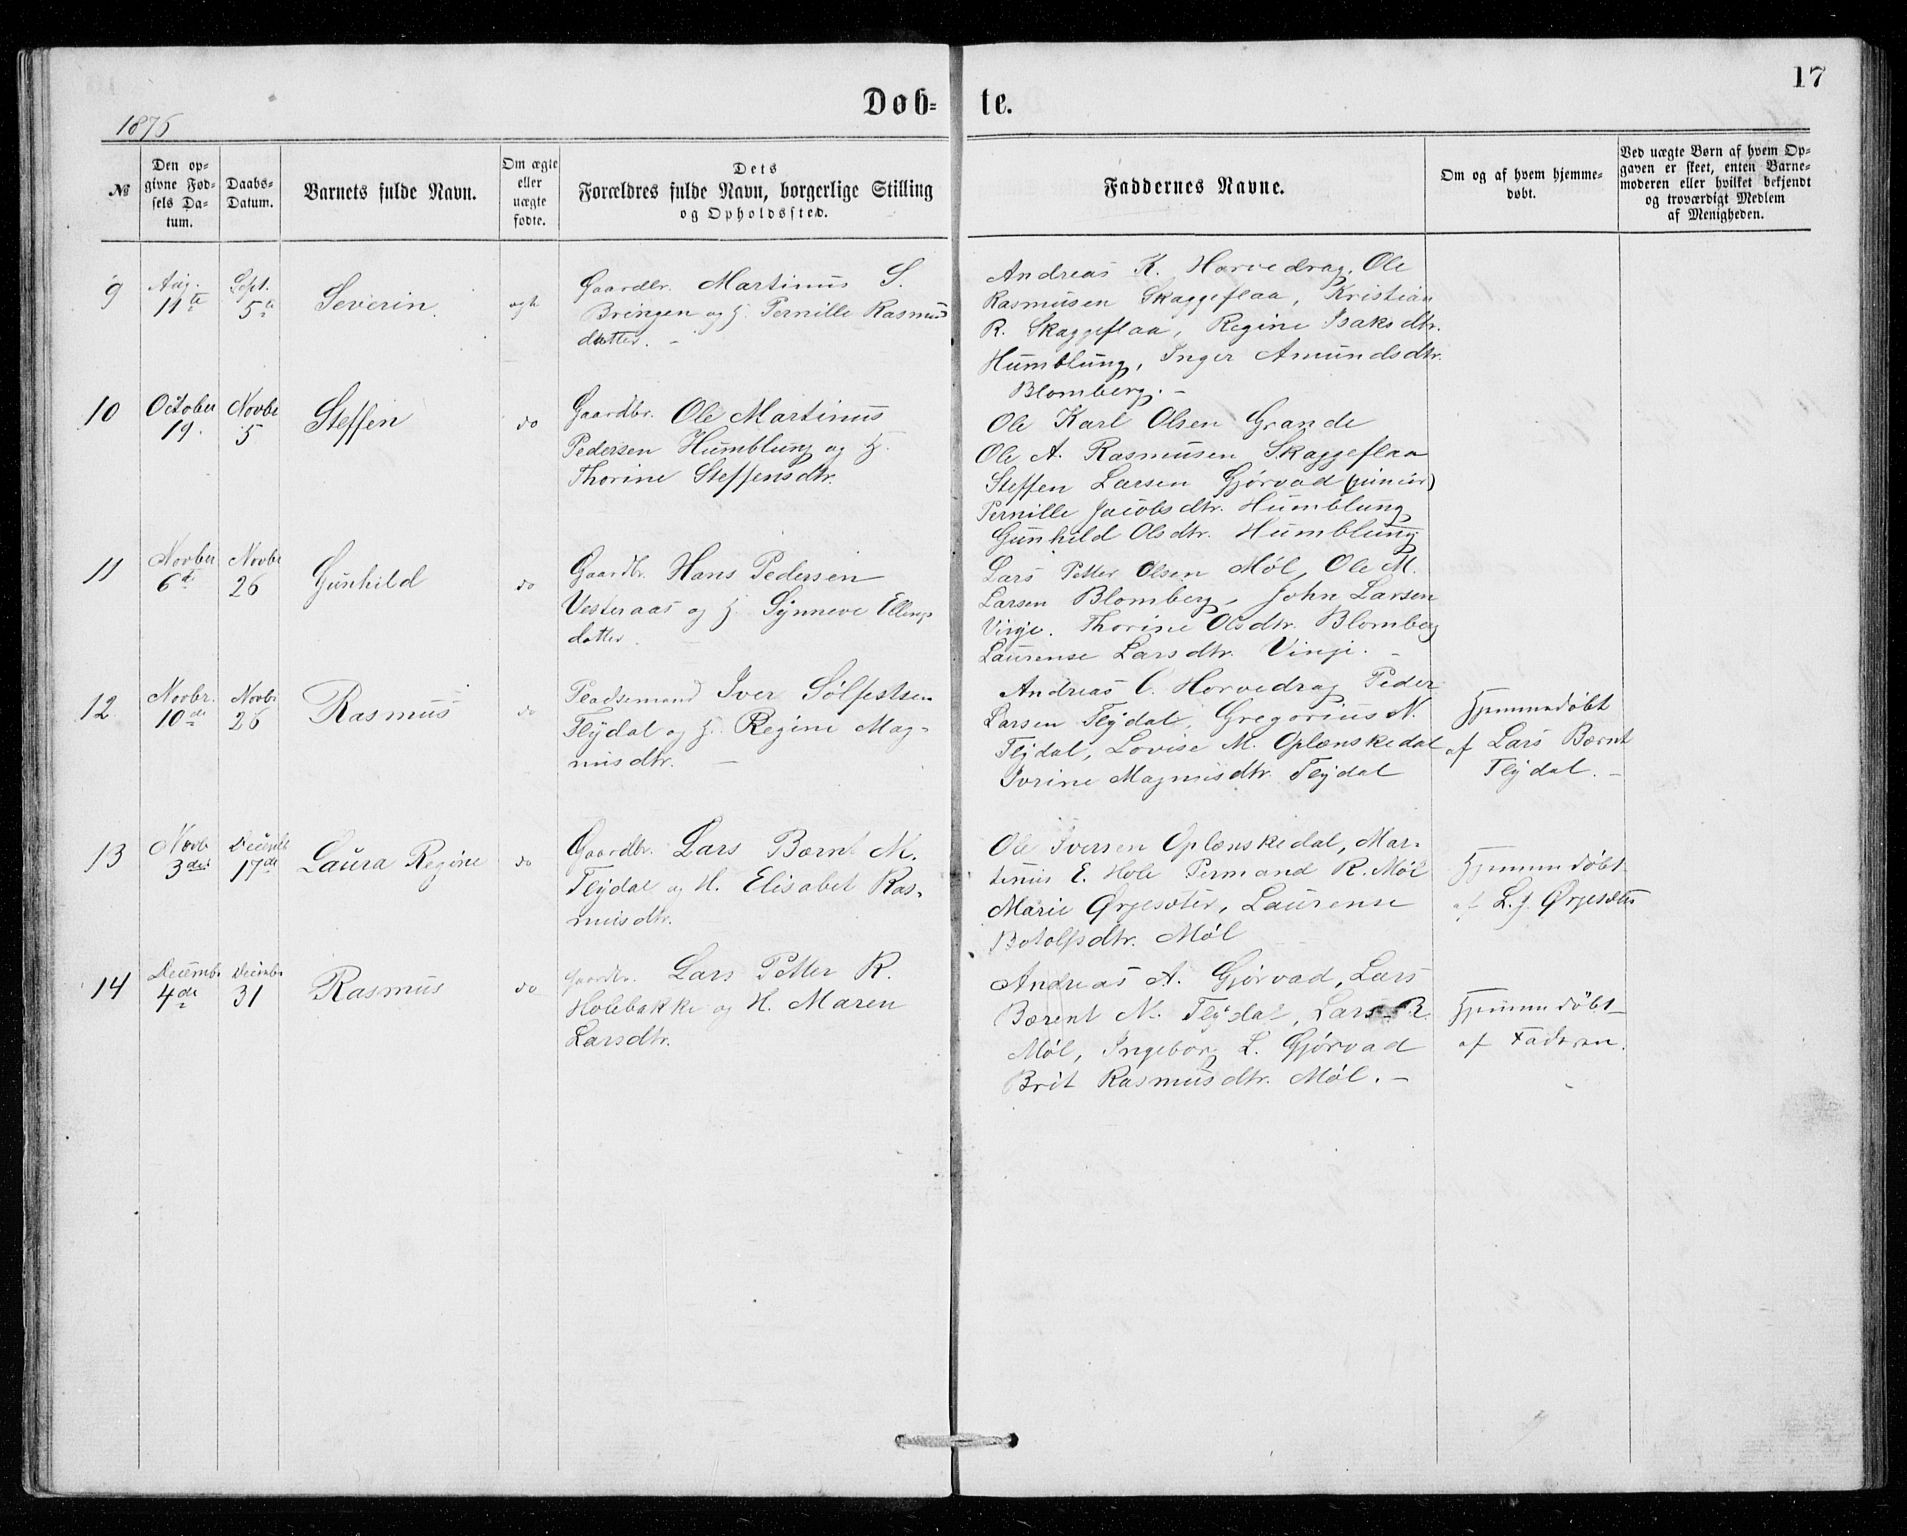 17
Døb- te.
1876
№
Den op-
givne Fød-
sels Da-
tum.
Daabs-
Datum.
Barnets fulde Navn.
Om ægte
eller
uægte
fødte.
Dets
Forældres fulde Navn, borgerlige Stilling
og Opholdssted.
Faddernes Navne.
Om og af hvem hjemme-
døbt.
Ved uægte Børn af hvem Op-
gaven er skeet, enten Barne-
moderen eller hvilket bekjendt
og troværdigt Medlem
af Menigheden.
9
Aug.
11te
Sept.
5te
Severin.
ægte
Gaardbr. Martinus S.
Bringen og H. Pernille Rasmus
datter. -
Andreas K. Horvedrag, Ole
Rasmusen Skaggeflaa, Kristian
R. Skaggeflaa, Regine Isaksdtr.
Humblung, Inger Amundsdtr.
Blomberg. -
10
October
19.
Novbr
5
Steffen
do
Gaardbr. Ole Martinus
Pedersen Humblung og H.
Thorine Steffensdtr.
Ole Karl Olsen Grande
Ole A. Rasmusen Skaggeflaa
Steffen Larsen Gjørvad (junior)
Pernille Jacobsdtr. Humblung
Gunhild Olsdtr. Humblung
11
Novber
6te
Novbr
26
Gunhild
do
Gaardbr. Hans Pedersen
Vesteraas og H. Synneve Ellings
datter
Lars Petter Olsen Møl, Ole M.
Larsen Blomberg, John Larsen
Vinje. Thorine Olsdtr. Blomberg
Laurense Larsdtr. Vinje. -
12
Novbr.
10de
Novbr
26
Rasmus
do
Pladsemand Iver Sølfestsen
Flydal og H. Regine Mag-
nusdtr. -
Andreas C. Horvedrag Peder
Larsen Flydal, Gregorius N.
Flydal, Lovise M. Oplænskedal
Ivrine Magnusdtr. Flydal
Hjemmedøbt
af Lars Bærnt
Flydal. -
13
Novb
3die
Decembr
17de
Laura Regine
do
Gaardbr. Lars Bærnt N.
Flydal og H. Elisabet Ras-
musdtr.
Ole Iversen Oplænskedal, Mar-
tinus E. Hole Permand R. Møl
Marie Ørjesæter, Laurense
Botolfsdtr. Møl
Hjemmedøbt
af L. J. Ørjesæter
14
Decembr
4de
Decembr
31
Rasmus
do
Gaardbr. Lars Petter R.
Holebakke og H. Maren
Larsdtr.
Andreas A. Gjørvad, Lars
Bærent N. Flydal, Lars R.
Møl, Ingeborg L. Gjørvad
Brit Rasmusdtr. Møl. -
Hjemmedøbt
af Faderen.